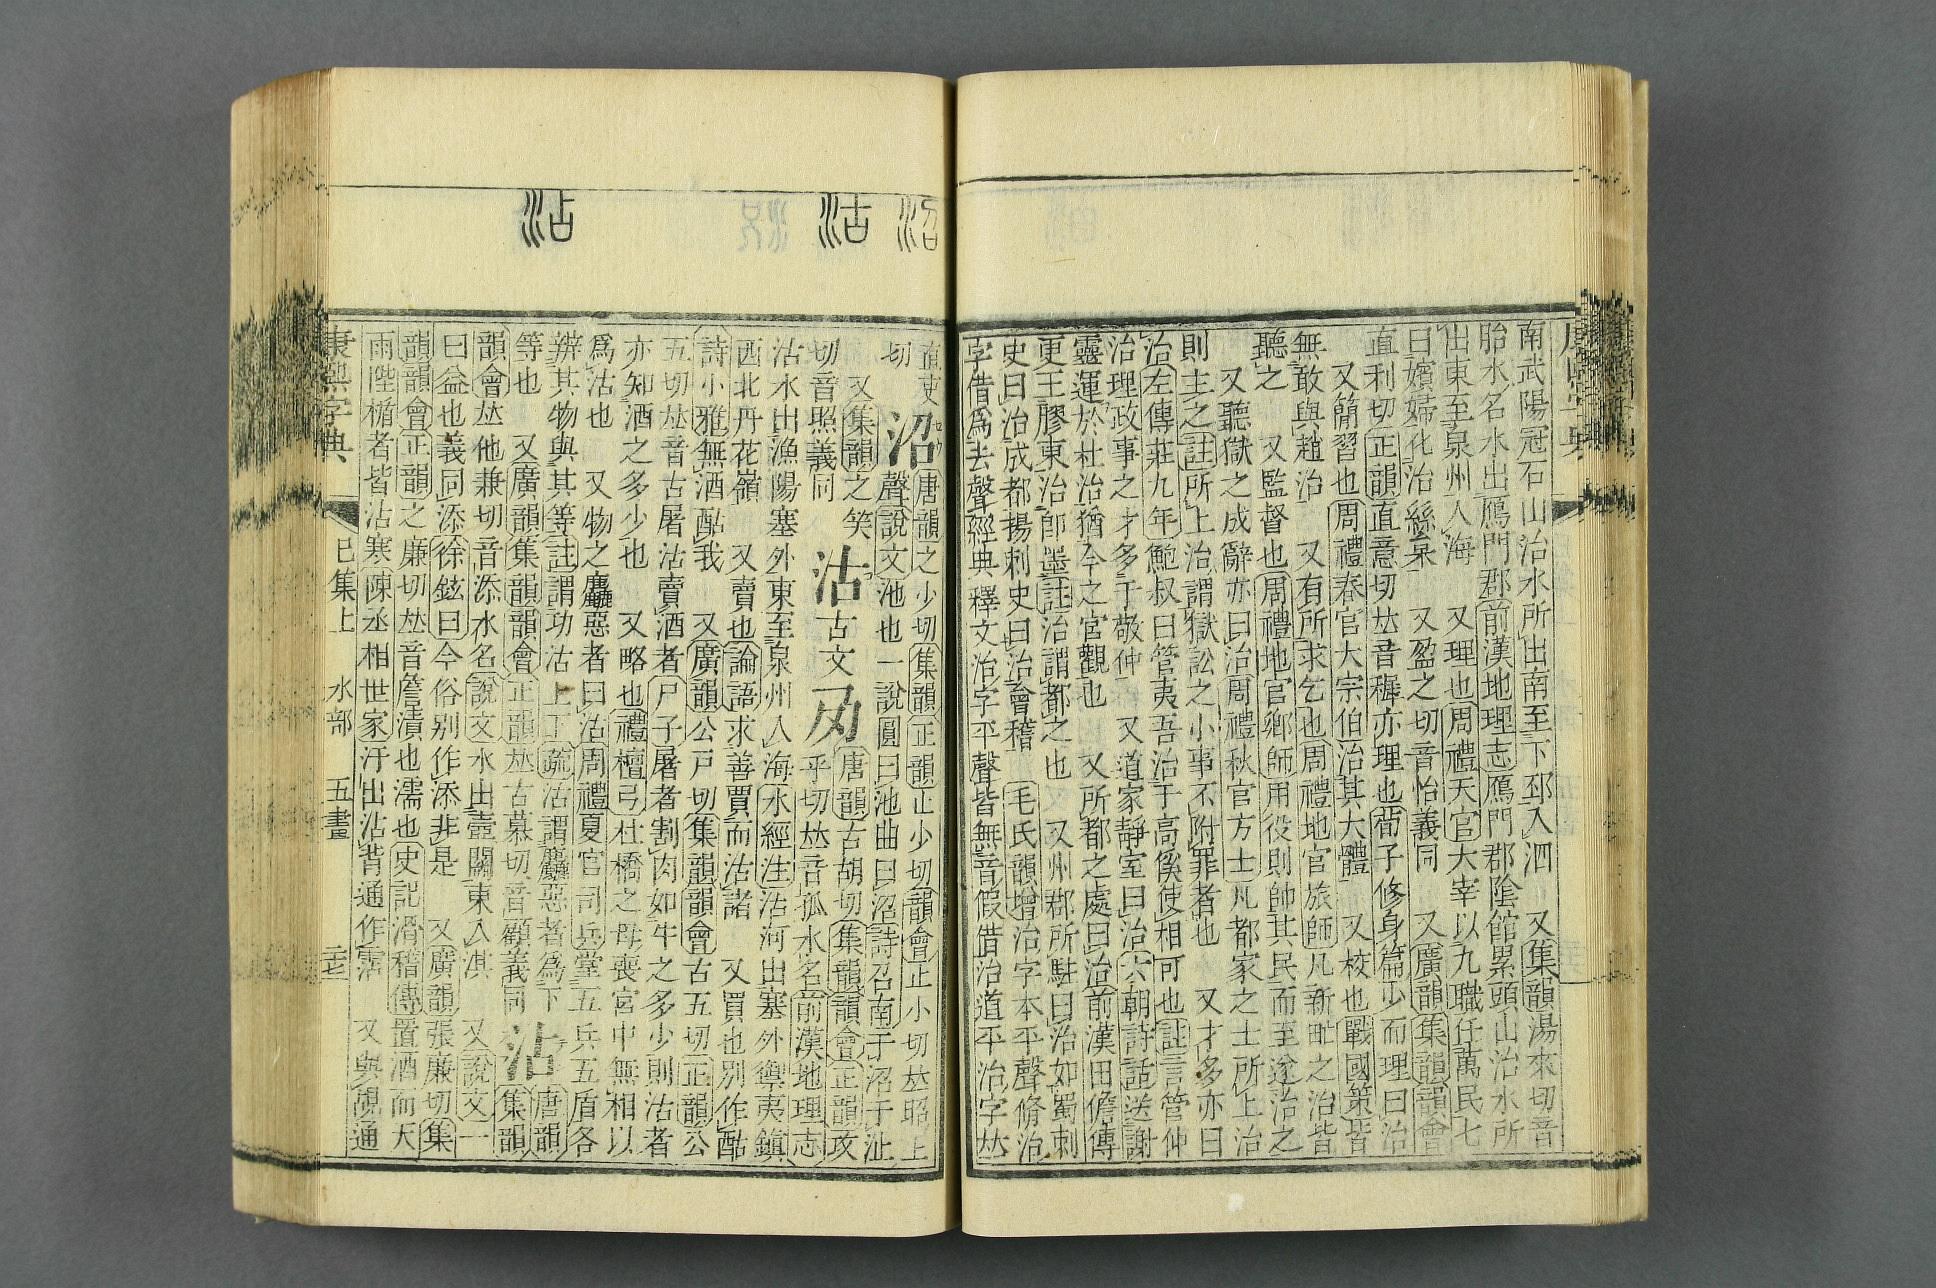 南武陽冠石山治水所出南至下邳入泗　又集韻湯來切音
胎水名水出鴈門郡前漢地理志鴈門郡陰館累頭山治水所
出東至泉州入海　又理也周禮天官大宰以九職任萬民七
曰嬪婦化治絲枲　又盈之切音怡義同　又廣韻集韻韻會
直利切正韻直意切𠀤音穉亦理也荀子修身篇少而理曰治
又簡習也周禮春官大宗伯治其大體　又校也戰國策皆
無敢與趙治　又有所求乞也周禮地官旅師凡新甿之治皆
聽之　又監督也周禮地官鄉師用役則帥其民而至遂治之
又聽獄之成辭亦曰治周禮秋官方士凡都家之士所上治
則主之註所上治謂獄訟之小事不附罪者也　又才多亦曰
治左傳莊九年鮑叔曰管夷吾治于高傒使相可也註言管仲
治理政事之才多于敬仲　又道家靜室曰治六朝詩話送謝
靈運於杜治猶今之宮觀也　又所都之處曰治前漢田儋傳
更王膠東治卽墨註治謂都之也　又州郡所駐曰治如蜀刺
史曰治成都揚刺史曰治會稽　毛氏韻增治字本平聲脩治
字借爲去聲經典釋文治字平聲皆無音假借治道平治字𠀤
沼
沽
沾
直吏
切
沼唐韻之少切集韻正韻止少切韻會止小切𠀤昭上
聲說文池也一說圓曰池曲曰沼詩召南于沼于沚
又集韻之笑
切音照義同
沽古文夃唐韻古胡切集韻韻會正韻攻
乎切𠀤音孤水名前漢地理志
沽水出漁陽塞外東至泉州入海水經注沽河出塞外禦夷鎮
西北丹花嶺　又賣也論語求善賈而沽諸　又買也別作酤
詩小雅無酒酤我　又廣韻公戸切集韻韻會古五切正韻公
五切𠀤音古屠沽賣酒者尸子屠者割肉如牛之多少則沽者
亦知酒之多少也　又略也禮檀弓杜橋之母喪宮中無相以
爲沽也　又物之麤惡者曰沽周禮夏官司兵掌五兵五盾各
辨其物與其等註謂功沽上下疏沽謂麤惡者爲下
等也　又廣韻集韻韻會正韻𠀤古慕切音顧義同
沾唐韻集韻
韻會𠀤他兼切音添水名說文水出壼關東入淇　又說文一
曰益也義同添徐鉉曰今俗別作添非是　又廣韻張廉切集
韻韻會正韻之廉切𠀤音詹漬也濡也史記滑稽傳置酒而天
雨陛楯者皆沾寒陳丞相世家汗出沾背通作霑　又與覘通
康熙字典　巳集上　水部　五畫